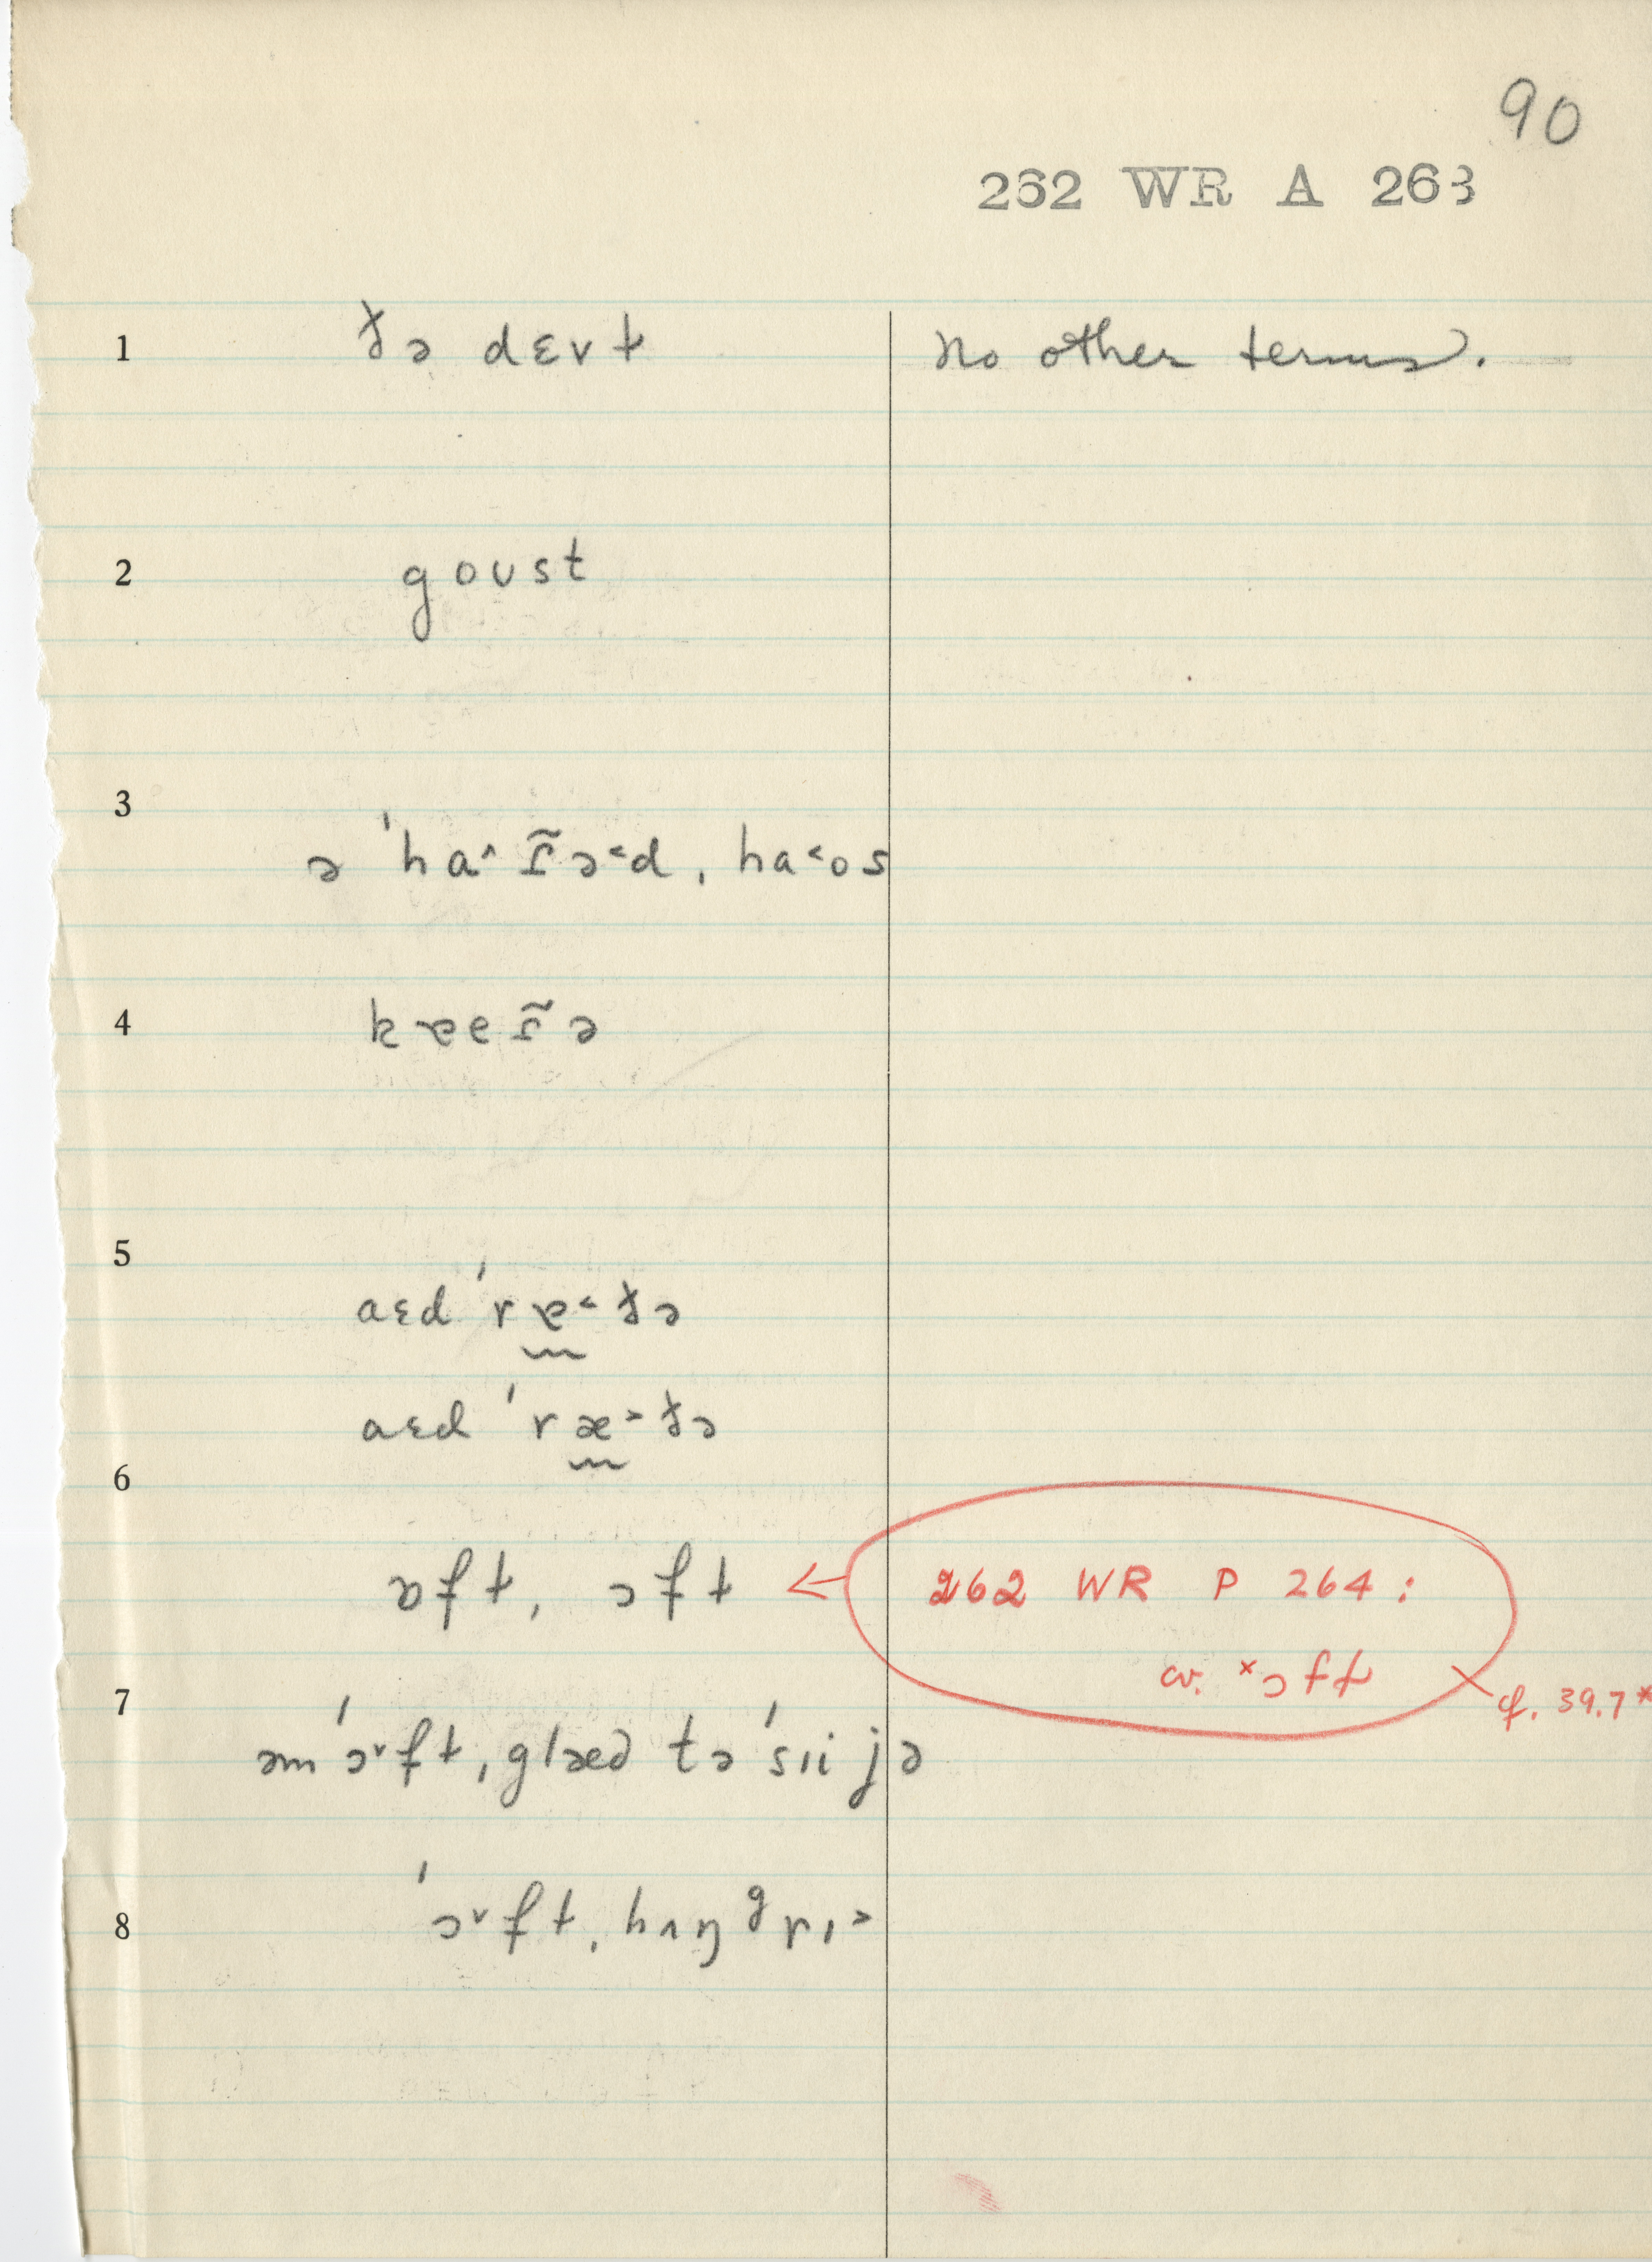 90
262 WR A 263
1 ðə dɛvɫ no other terms.
2 goust
3 ə 'ha^ r̃ə<d, ha<os
4 kɐer̃ə
5
aɛd 'rɐ<ðə
aɛd 'ræ>ðə
6
ɒfɫ, ɔfɫ ← 262 WR P 264:
cv. *ɔfɫ
7 cf. 39.7*
əm 'ɔ˅fɫ, glæd tə 'sıi jə
8 'ɔ˅fɫ, hʌŋgrɪ>